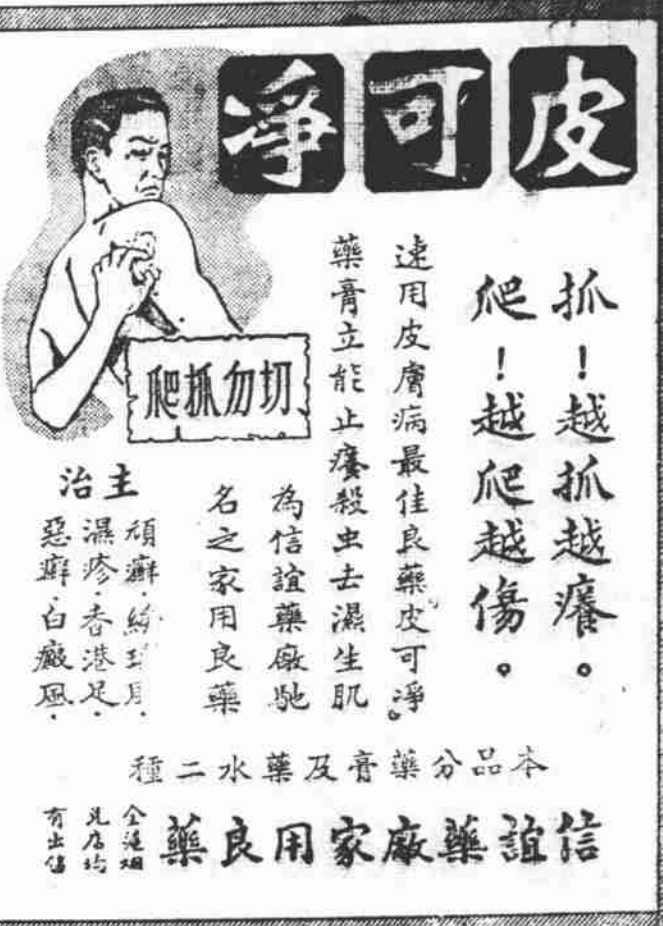 皮可淨
抓！越抓越癢。
爬！越爬越傷。
速用皮膚病最佳良藥〝皮可淨〞
藥膏立能止癢殺虫去濕生肌
為信誼藥廠馳
名之家用良藥
切勿抓爬
主治
頑癬·
濕疹·香港足·
惡癬·白癜風·
本品分藥膏及藥水二種
信誼藥廠家用良藥
全滬烟
兌店均
有出售